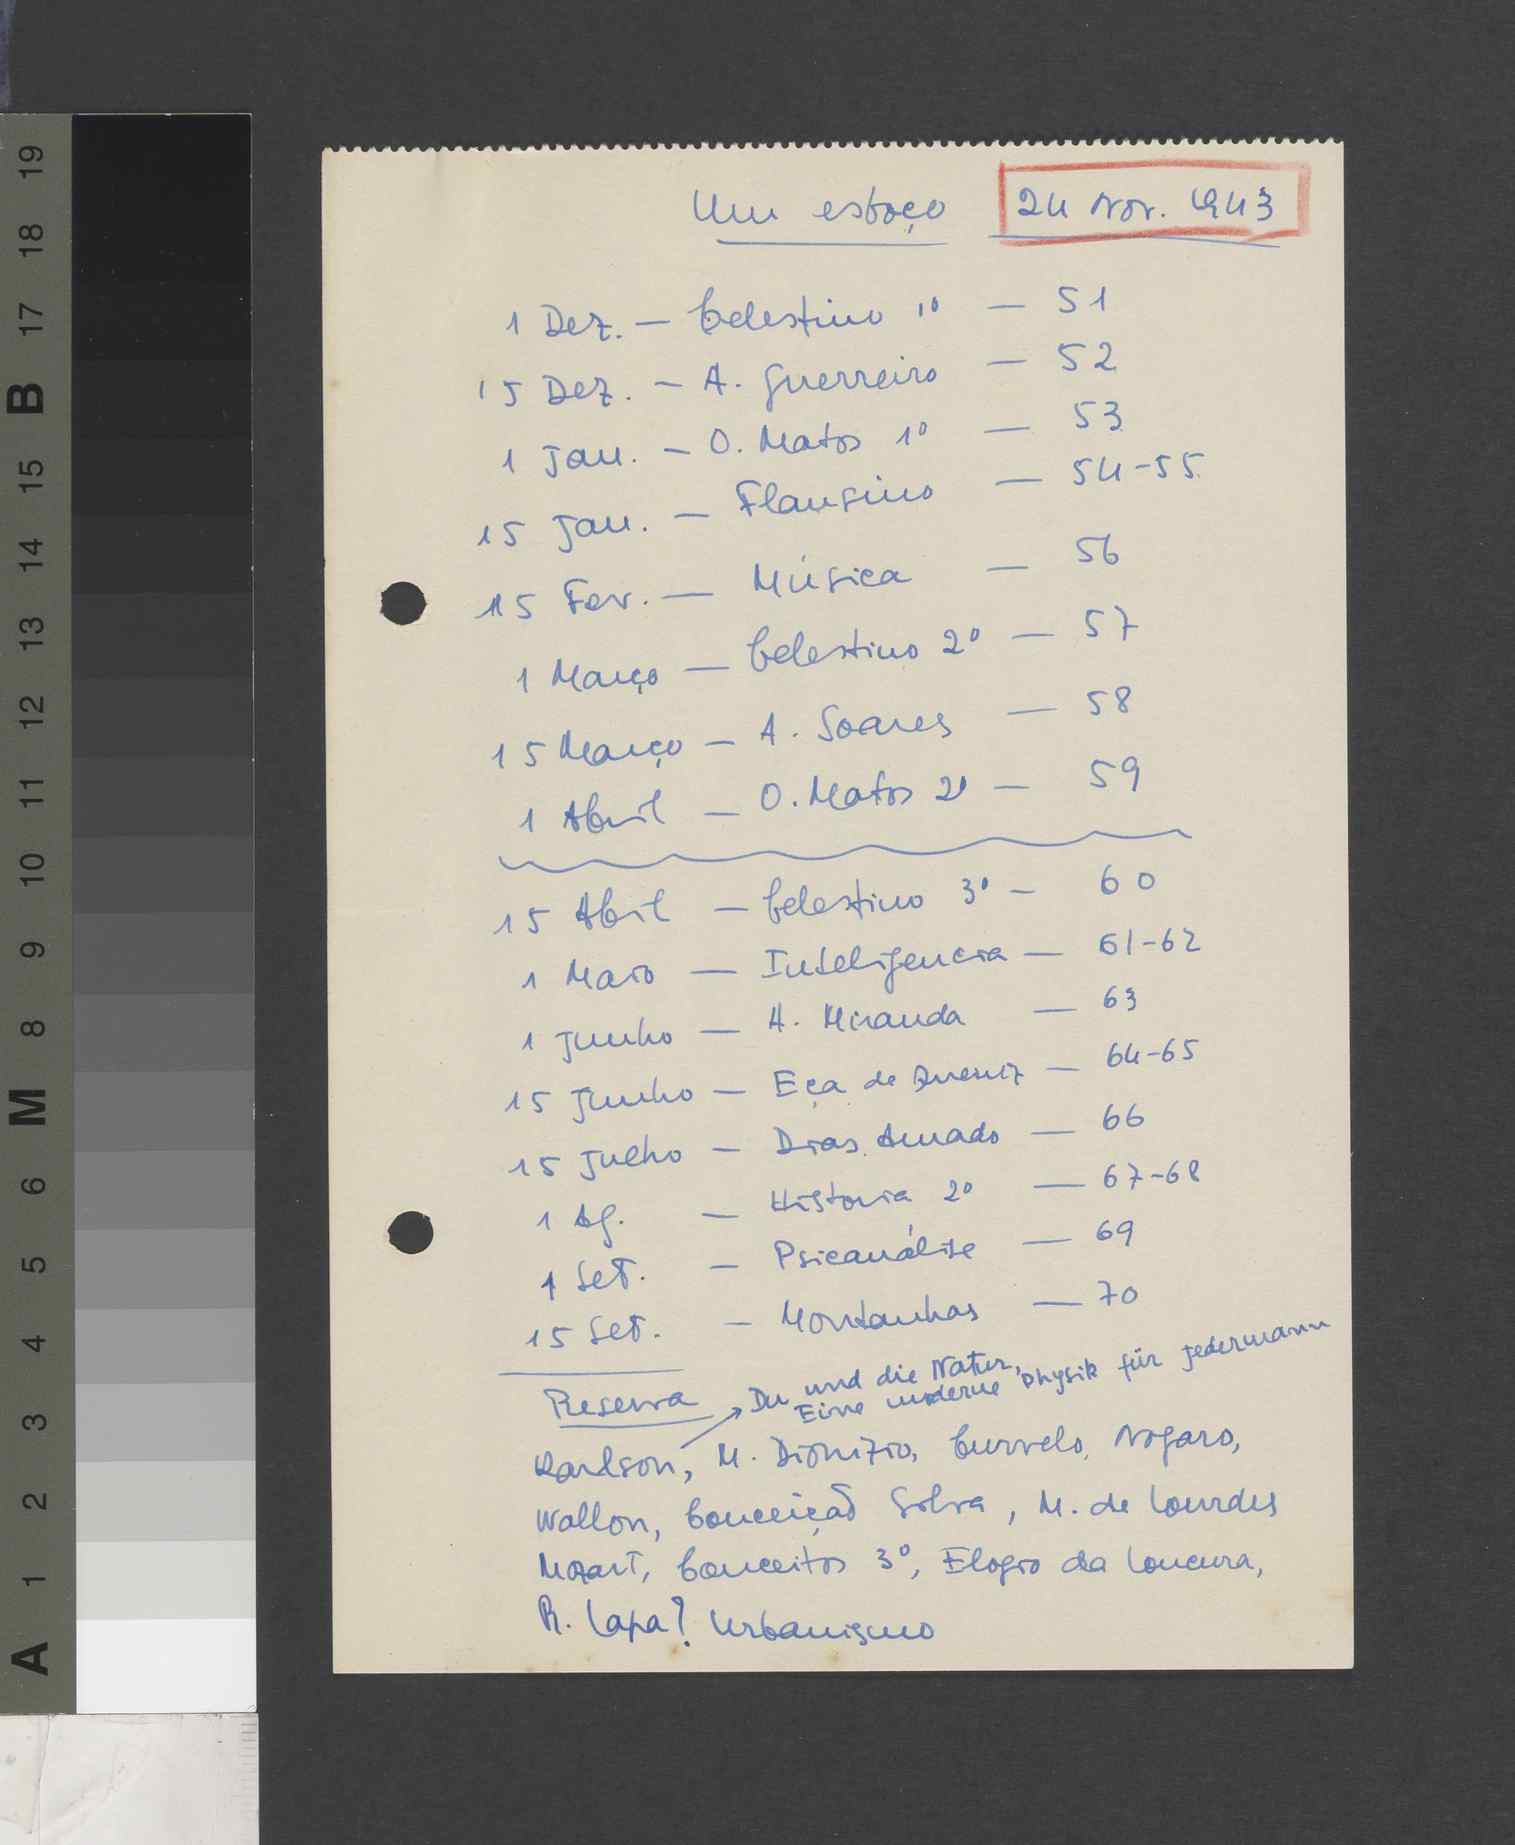 Um esboço 24 Nov. 1943
1 Dez. — Celestino 1º — 51
15 Dez. — A. Guerreiro — 52
1 Jan. — O. Matos 1º — 53
15 Jan. — Flausino — 54-55
15 Fev. — Música — 56
1 Março — Celestino 2º — 57
15 Março — A. Soares — 58
1 Abril — O. Matos 2º — 59
15 Abril — Celestino 3º — 60
1 Maio — Inteligencia — 61-62
1 Junho — A. Miranda — 63
15 Junho — Eça de Queiriz — 64-65
15 Julho — Dias Amado — 66
1 Ag. — Historia 2º — 67-68
1 Set. — Psicanálise — 69
15 Set. — Montanhas — 70
Reserva Du und die Natur,
Eine moderne Physik für Jedermann
Karlson, M. Dionizio, Curvelo, Nogaro,
Wallon, Conceição Silva, M. de Lourdes
Mozart, Conceitos 3º, Elogio da Loucura,
R. Lapa? Urbanismo
19
18
17
B
15
14
13
12
11
10
9
8
M
6
5
4
3
2
1
A